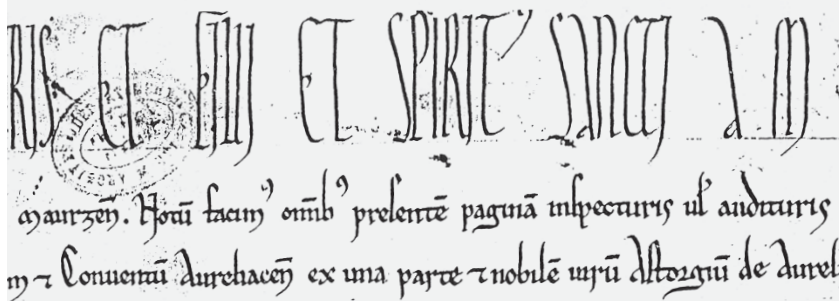 RIS ET FILII ET SPIRIT᾽ SANCTI AM
Maurzen̄. Notū facim᾽ omīb᾽ presentē paginā inspecturis ul᾽ audituris
m ⁊ Conventū Aureliacen̄ ex una parte ⁊ nobilē uirū Astorgiū de Aurel